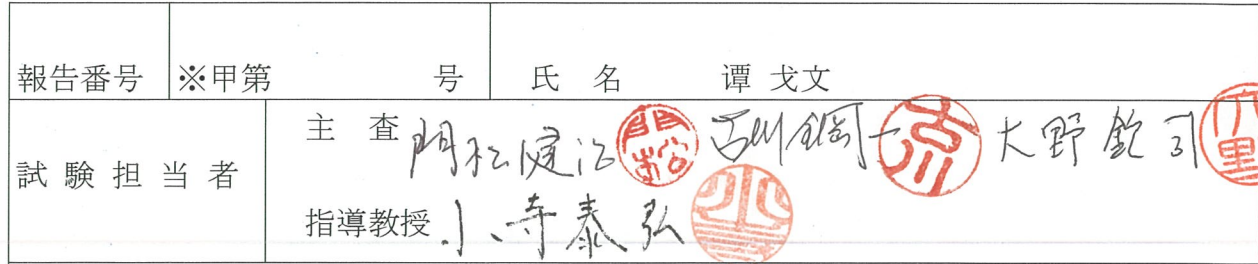 報告番号 ※甲第 号 氏 名 谭 戈文
試 験 担 当 者
主 査 門松健治 門松 古川鋼一 古川 大野欽司 大野
指導教授 小寺泰弘